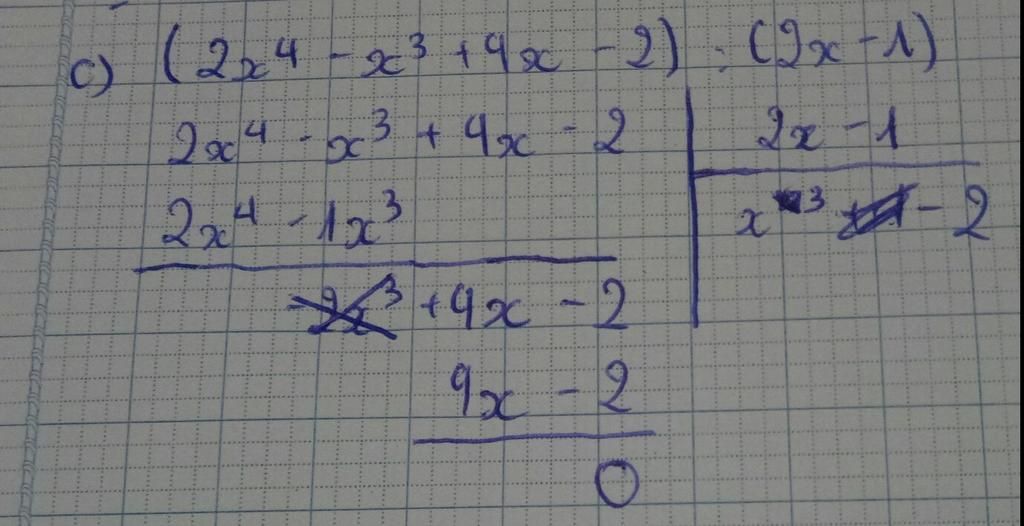 c) (2x⁴ - x³ + 4x - 2) : (2x - 1)
2x⁴ - x³ + 4x - 2 | 2x - 1
2x⁴ - 1x³ | x³ - 2
+4x - 2
4x - 2
0